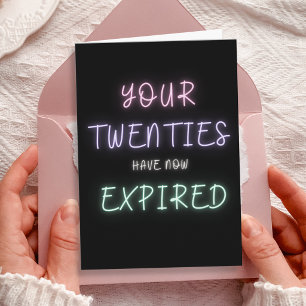 YOUR
TWENTIES
HAVE NOW
EXPIRED